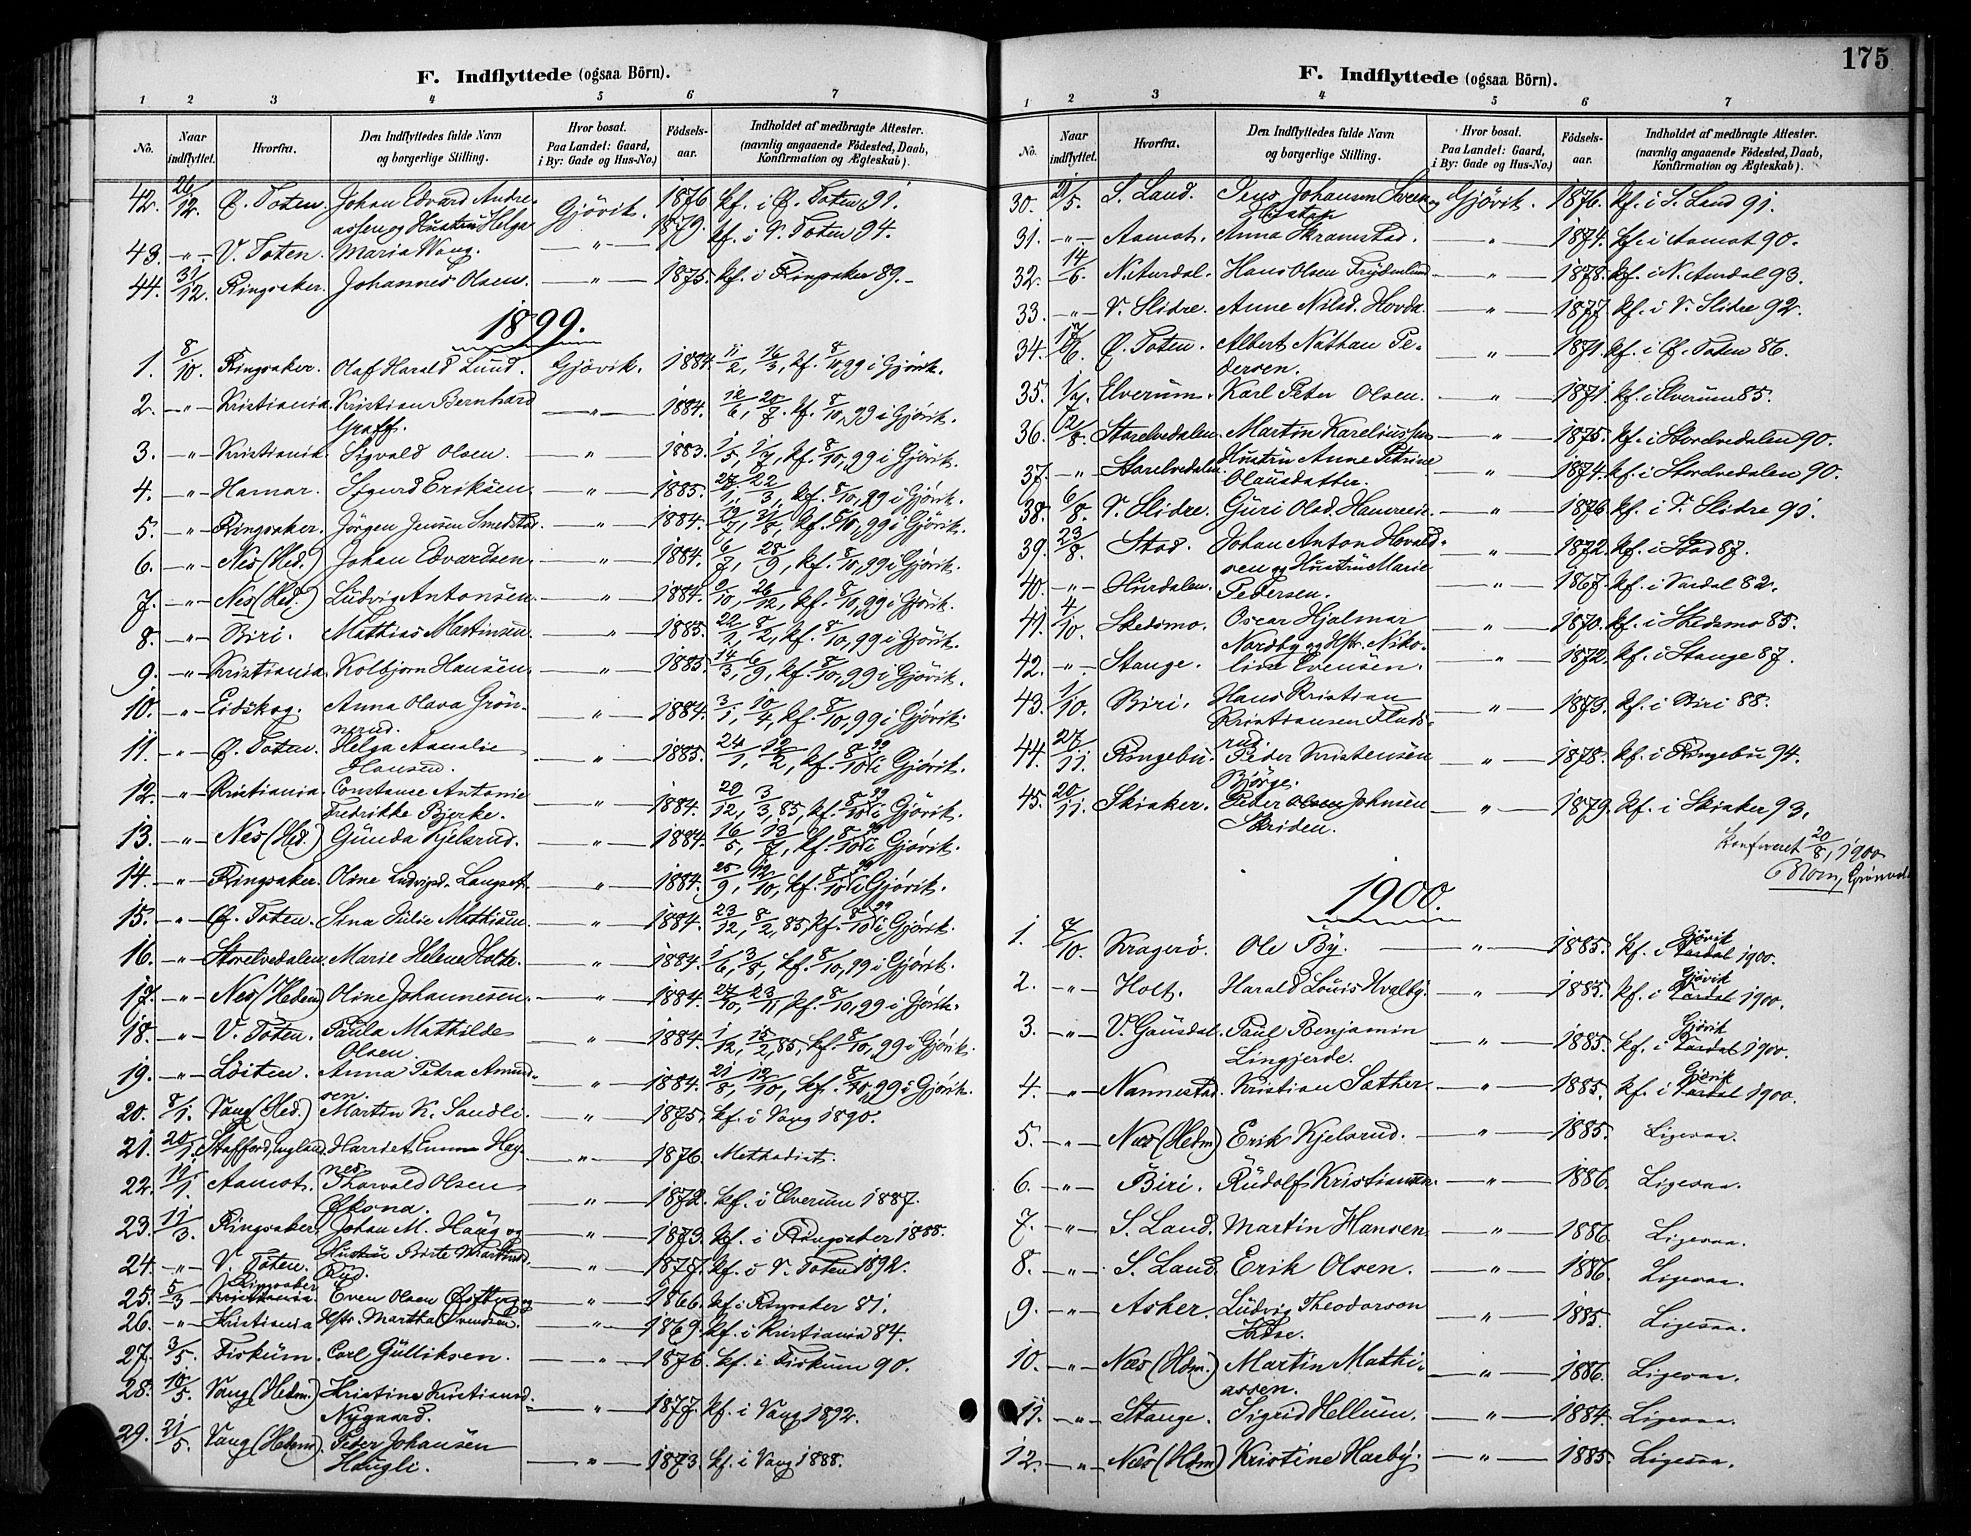 F. Indflyttede (ogsaa Börn).
1 2 3 4 5 6 7
No. Naar indflyttet. Hvorfra. Den Indflyttedes fulde Navn og borgerlige Stilling. Hvor bosat. Paa Landet: Gaard, i By: Gade og Hus-No.) Födsels-aar. Indholdet af medbragte Attester. (navnlig angaaende Födested, Daab, Konfirmation og Ægteskab).
42. 26/12. Ø. Toten. Johan Edvard Andre- Gjövik. 1876 kf. i Ø. Toten 91.
assen og Hustru Helga 1879. kf. i V. Toten 94.
43. -"- V. Toten Maria Wang. -"-
44. 31/12. Ringsaker. Johannes Olsen. -"- 1875. kf. i Ringsaker 89.-
1899.
1. 8/10. Ringsaker. Olaf Harald Lund. Gjövik. 1884. 11/2, 16/3, kf. 8/10, 99 i Gjövik.
2. -"- Kristiania. Kristian Bernhard -"- 1884. 12/6, 20/7. kf. 8/10, 99 i Gjövik.
Graff.
3. -"- Kristiania. Sigvald Olsen. -"- 1883. 1/5, 1/7, kf. 8/10, 99 i Gjövik.
4. -"- Hamar. Sigurd Eriksen -"- 1885. 28/1, 22/3, kf. 8/10, 99 i Gjövik.
5. -"- Ringsaker. Jörgen Jensen Smedstad. -"- 1884. 19/7, 31/8, kf. 8/10, 99 i Gjövik.
6. -"- Nes (Hed.) Johan Edvardsen -"- 1884. 6/7, 28/9, kf. 8/10, 99 i Gjövik.
7. -"- Nes (Hed.) Ludvig Antonsen. -"- 1884. 9/10, 26/12, kf. 8/10, 99 i Gjövik.
8. -"- Biri. Mathias Martinsen. -"- 1885. 22/1, 8/2, kf. 8/10, 99 i Gjövik.
9. -"- Kristiania. Kolbjörn Hansen. -"- 1885. 14/3, 6/9, kf. 8/10, 99 i Gjövik.
10. -"- Eidskog. Anna Olava Grön- -"- 1884. 3/1, 10/4, kf. 8/10, 99 i Gjövik.
nerud.
11. -"- Ø. Toten. Helga Amalie -"- 1885. 24/1, 12/2, kf. 8/10 99 i Gjövik.
Hansen.
12. -"- Kristiania. Constance Antonie -"- 1884. 20/12, 3/3, 85, kf. 8/10 99 i Gjövik.
Fredrikke Bjerke.
13. -"- Nes (Hed.) Gunda Kjelsrud. -"- 1884. 16/5, 13/7, kf. 8/10 99 i Gjövik.
14. -"- Ringsaker. Oline Ludvigsd. Langset. -"- 1884. 25/9, 12/10, kf. 8/10 99 i Gjövik.
15. -"- Ø. Toten. Stina Julie Mathisen. -"- 1884. 23/12, 8/2, 85, kf. 8/10 99 i Gjövik.
16. -"- Storelvedalen. Marie Helene Holte. -"- 1884. 1/6, 3/8, kf. 8/10, 99 i Gjövik.
17. -"- Nes (Hedm) Oline Johannesen. -"- 1884. 27/10, 23/11, kf. 8/10, 99 i Gjövik.
18. -"- V. Toten. Paula Mathilde -"- 1884. 1/12, 12/2, 85, kf. 8/10, 99 i Gjövik.
Olsen.
19. -"- Löiten. Anna Petra Amund- -"- 1884. 21/8, 12/10, kf. 8/10, 99 i Gjövik.
sen.
20. 8/1. Vang (Hed.) Martin K. Sandli. -"- 1875. kf. i Vang 1890.
21. 20/1. Stafford, England. Harriet Emma Hay- -"- 1876. Methodist.
nes.
22. 19/1. Aamot. Thorvald Olsen -"- 1872. kf. i Elverum 1887.
Økona.
23. 11/3. Ringsaker. Johan M. Haug og -"- 1873. kf. i Ringsaker 1888.
24. -"- V. Toten. Hustru Birte Martinsd. -"- 1877. kf. i V. Toten 1892.
Rud.
25. 5/3 Ringsaker Kristiania. Even Olsen Östberg og -"- 1866. kf. i Ringsaker 81.
26. -"- Kristiania Hstr. Martha Svendsen. -"- 1869. kf. i Kristiania 84.
27. 3/5. Fiskum. Carl Gulliksen. -"- 1876. kf. i Fiskum 90.
28. 10/5. Vang (Hedm.) Kristine Kristiansd. -"- 1877. kf. i Vang 1892.
Nygaard.
29. 21/5. Vang (Hedm) Peder Johansen -"- 1873. kf. i Vang 1888.
Haugli.
175
F. Indflyttede (ogsaa Börn).
1 2 3 4 5 6 7
No. Naar indflyttet. Hvorfra. Den Indflyttedes fulde Navn og borgerlige Stilling. Hvor bosat. Paa Landet: Gaard, i By: Gade og Hus-No.) Födsels-aar. Indholdet af medbragte Attester. (navnlig angaaende Födested, Daab, Konfirmation og Ægteskab).
30. 21/5. S. Land. Jens Johansen Sveen og Gjövik. 1876. kf. i S. Land 91.
31. -"- Aamot. Anna Skramstad. -"- 1874. kf. i Aamot 90.
32. 14/6. N. Aurdal. Hans Olsen Frydenlund -"- 1878. kf. i N. Aurdal 93.
33. -"- V. Slidre. Anne Nilsd. Hovda. -"- 1877. kf. i V. Slidre 92.
34. 17/6. Ø. Toten. Albert Nathan Pe- -"- 1871. kf. i Ø. Toten 86.
dersen.
35. 1/7. Elverum. Karl Peter Olsen. -"- 1871. kf. i Elverum 85.
36. 12/8. Storelvedalen. Martin Kareliussen -"- 1875. kf. i Storelvedalen 90.
37. -"- Storelvedalen. Hustru Anne Petrine -"- 1874. kf. i Storelvedalen 90.
Olausdatter.
38. 6/8. V. Slidre. Guri Olsd. Hamre -"- 1876. kf. i V. Slidre 91.
39. 23/8. Stod. Johan Anton Hovald- -"- 1872. kf. i Stod 87.
sen og Hustru Marie
40. -"- Hurdalen. Pedersen. -"- 1867. kf. i Vardal 82.
41. 4/10. Skedsmo. Oscar Hjalmar -"- 1870. kf. i Skedsmo 85.
Nordby og Hstr. Niko-
42. -"- Stange. line Evensen. -"- 1872. kf. i Stange 87.
43. 1/10. Biri. Hans Kristian -"- 1873. kf. i Biri 88.
Kristiansen Fluds-
rud.
44. 27/11. Ringebu. Peder Kristensen -"- 1878. kf. i Ringebu 94.
Bjørge.
45. 20/11. Skiaker. Peder Olsen Johnsen -"- 1879. kf. i Skiaker 93.
Skriden.
Konfereret 20/8, 1900
1900.
1. 7/10. Kragerö. Ole By. -"- 1885. kf. i Vardal Gjövik 1900.
2. -"- Holt. Harald Louis Hvalby. -"- 1885. kf. i Vardal Gjövik 1900.
3. -"- V. Gausdal. Paul Benjamin -"- 1885. kf. i Vardal Gjövik 1900.
Lingjerde.
4. -"- Nannestad. Kristian Sæther -"- 1885. kf. i Vardal Gjövik 1900.
5. -"- Næs (Hedm) Erik Kjelsrud. -"- 1885. Ligesaa.
6. -"- Biri. Rudolf Kristiansen. -"- 1886. Ligesaa.
7. -"- S. Land. Martin Hansen. -"- 1886. Ligesaa.
8. -"- S. Land. Erik Olsen. -"- 1886. Ligesaa.
9. -"- Asker. Ludvig Theodorsen -"- 1885. Ligesaa.
10. -"- Næs (Hdm.) Martin Mathi- -"- 1886. Ligesaa.
assen.
11. -"- Stange. Sigrid Hellum. -"- 1884. Ligesaa.
12. -"- Næs (Hdm) Kristine Harby. -"- 1885. Ligesaa.